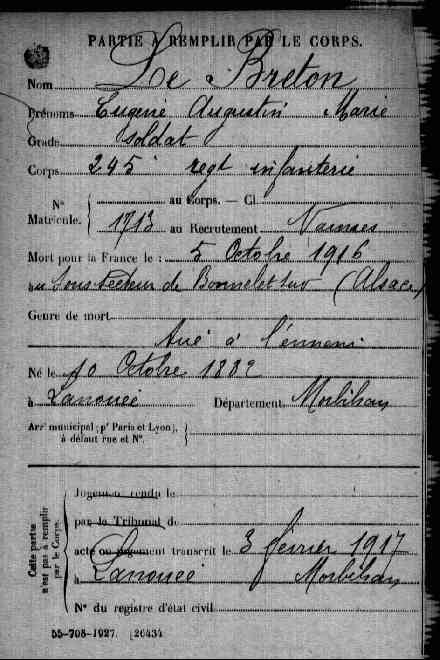 PARTIE À REMPLIR PAR LE CORPS.
Nom Le Breton
Prénoms Eugène Augustin Marie
Grade soldat
Corps 245e regt infanterie
N° Matricule. { au Corps. — Cl.
1713 au Recrutement Vannes
Mort pour la France le : 5 Octobre 1916
au Sous secteur de (Alsace)
Genre de mort
Tué à l'ennemi
Né le 10 Octobre 1882
à Lanouée Département Morbihan
Arr municipal (pr Paris et Lyon), à défaut rue et N°. {
Cette partie n'est pas à remplir par le Corps.
Jugement rendu le
par le Tribunal de
acte ou jugement transcrit le 3 février 1917
à Lanouée Morbihan
N° du registre d'état civil
55-708-1927. [26434